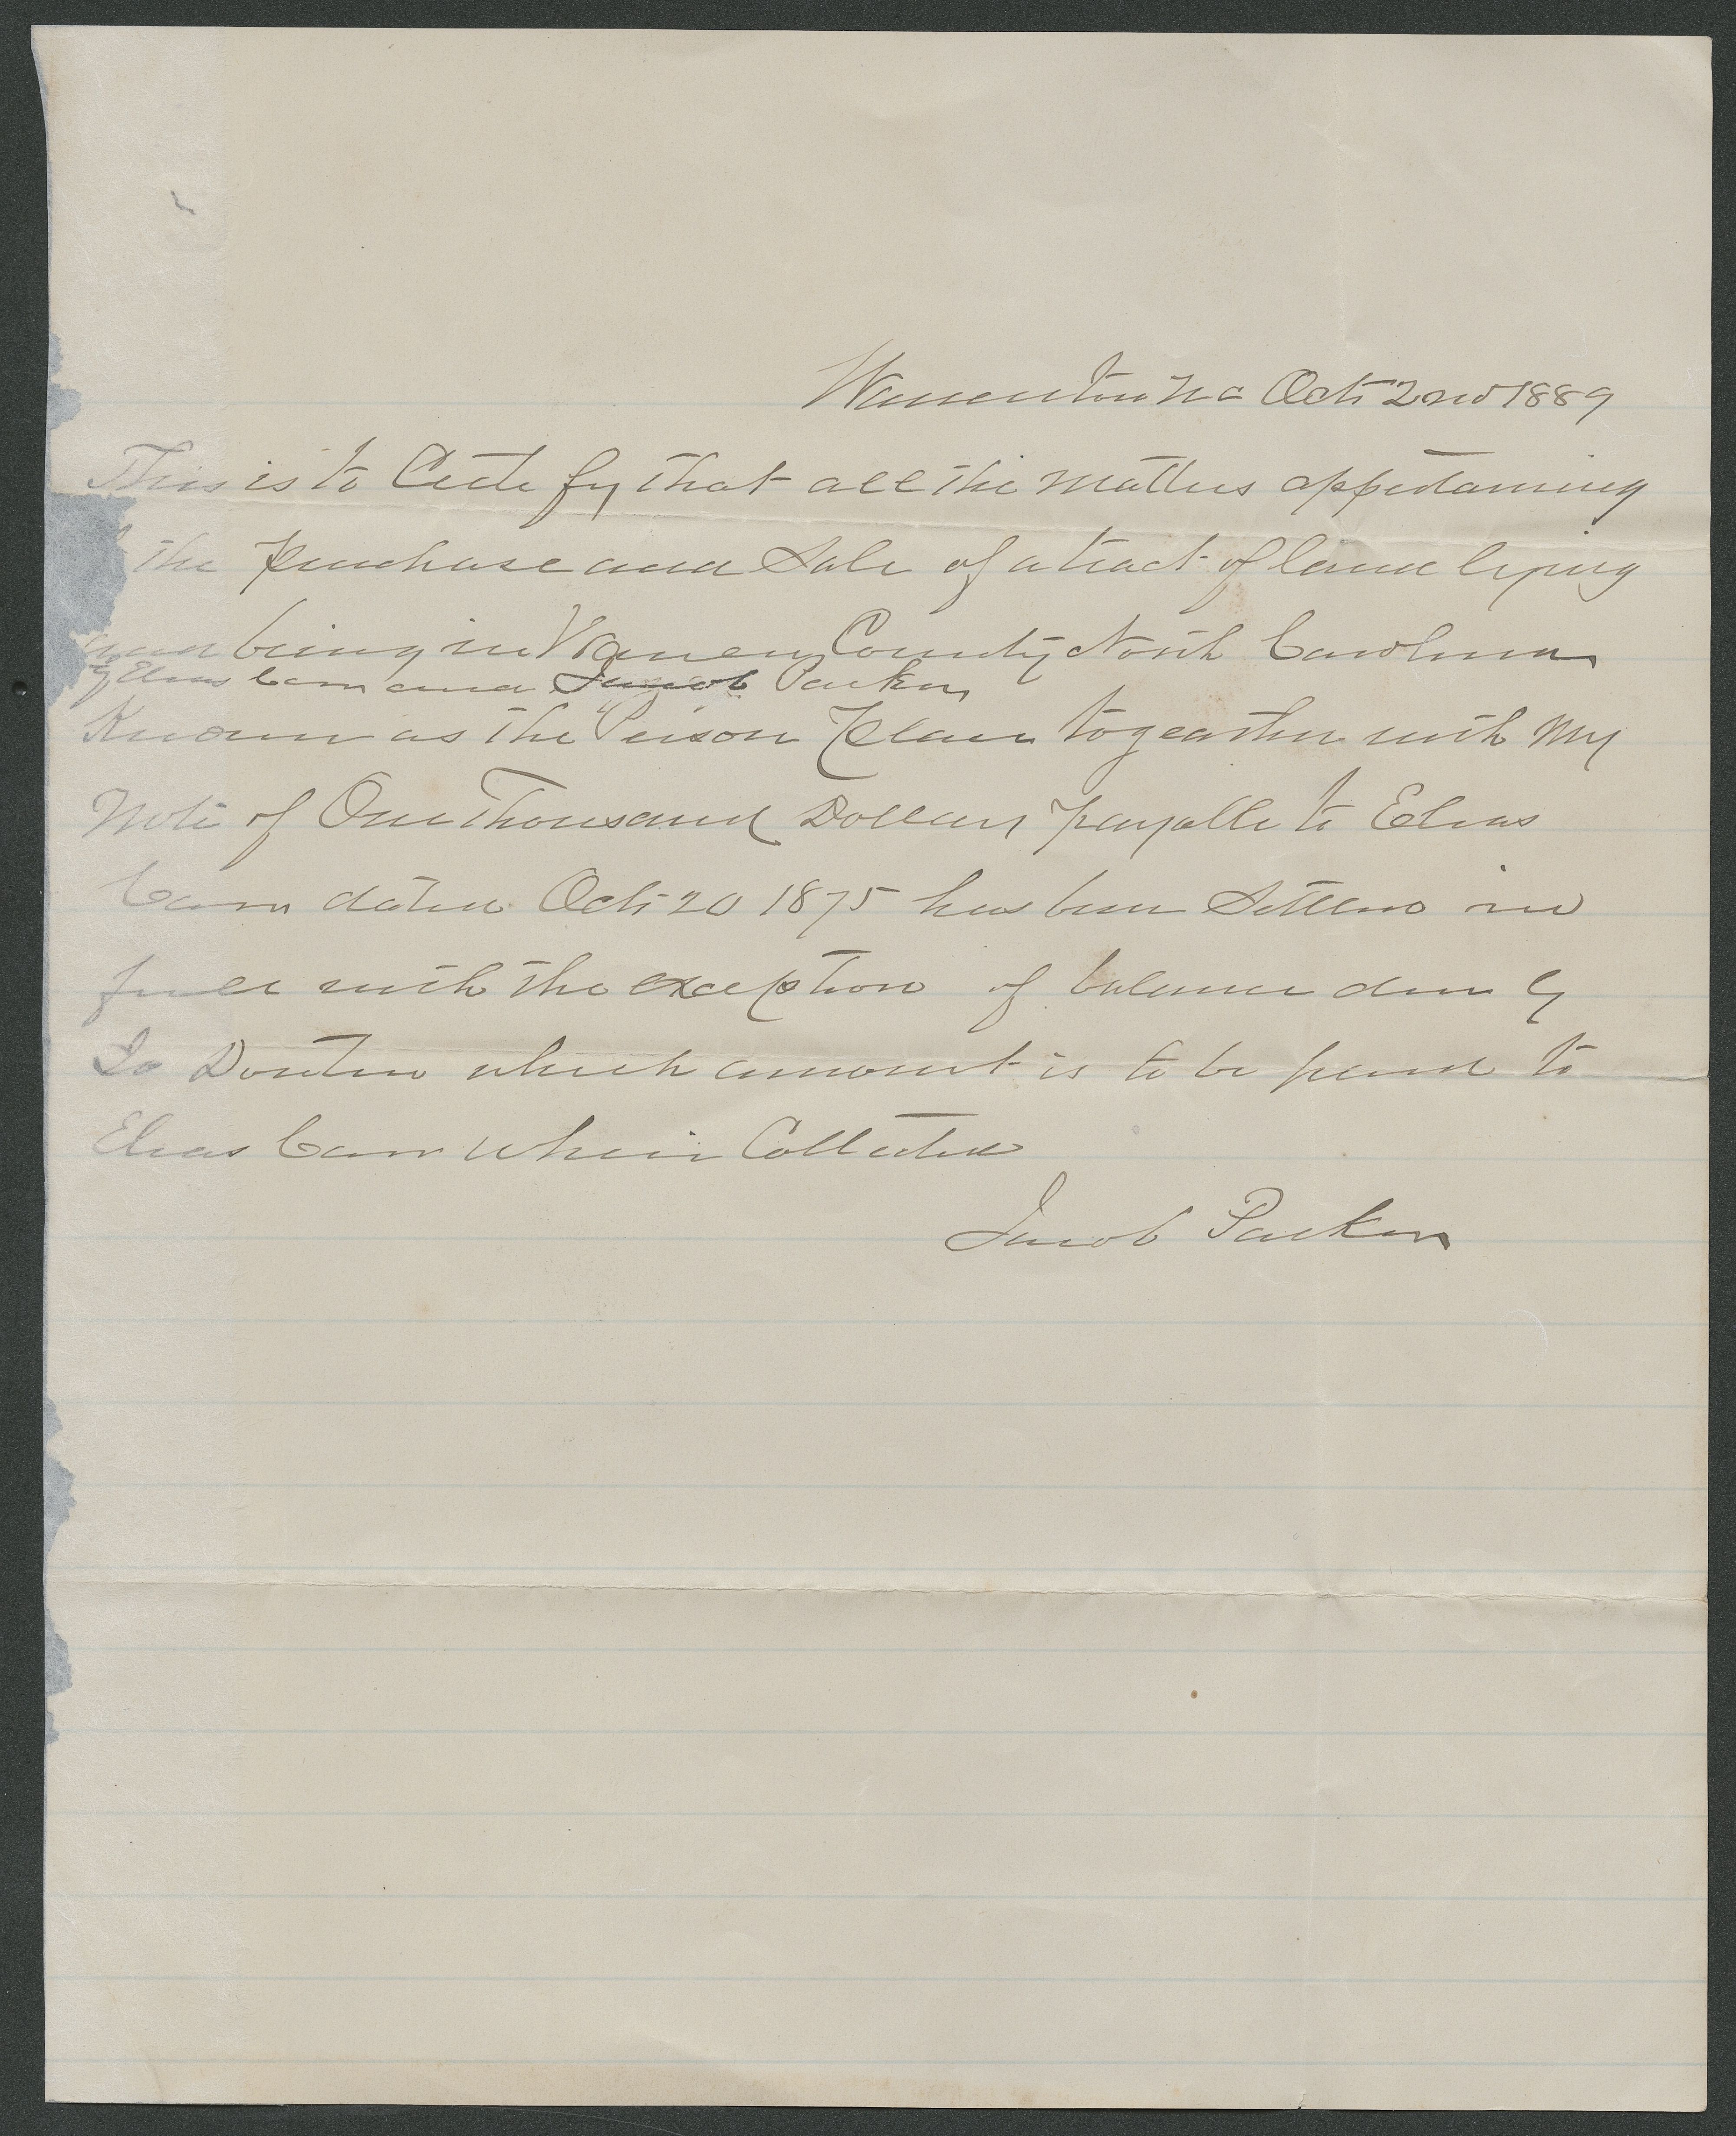 Warrenton N C Oct 2nd 1889
This is to Certe fy that all the matters appertaining
the purchase and Sale of a tract of land lying
and being in Warren County North Carolina
by Elias Carr and Jacob Parker
Known as the "Person Place togeather with my
Note of One Thousand Dollars payable to Elias
Carr dated Oct 20 1875 has been Settled in
full with the exception of balance due by
which amount is to be paid to
Elias Carr when Collected
Jacob Parker